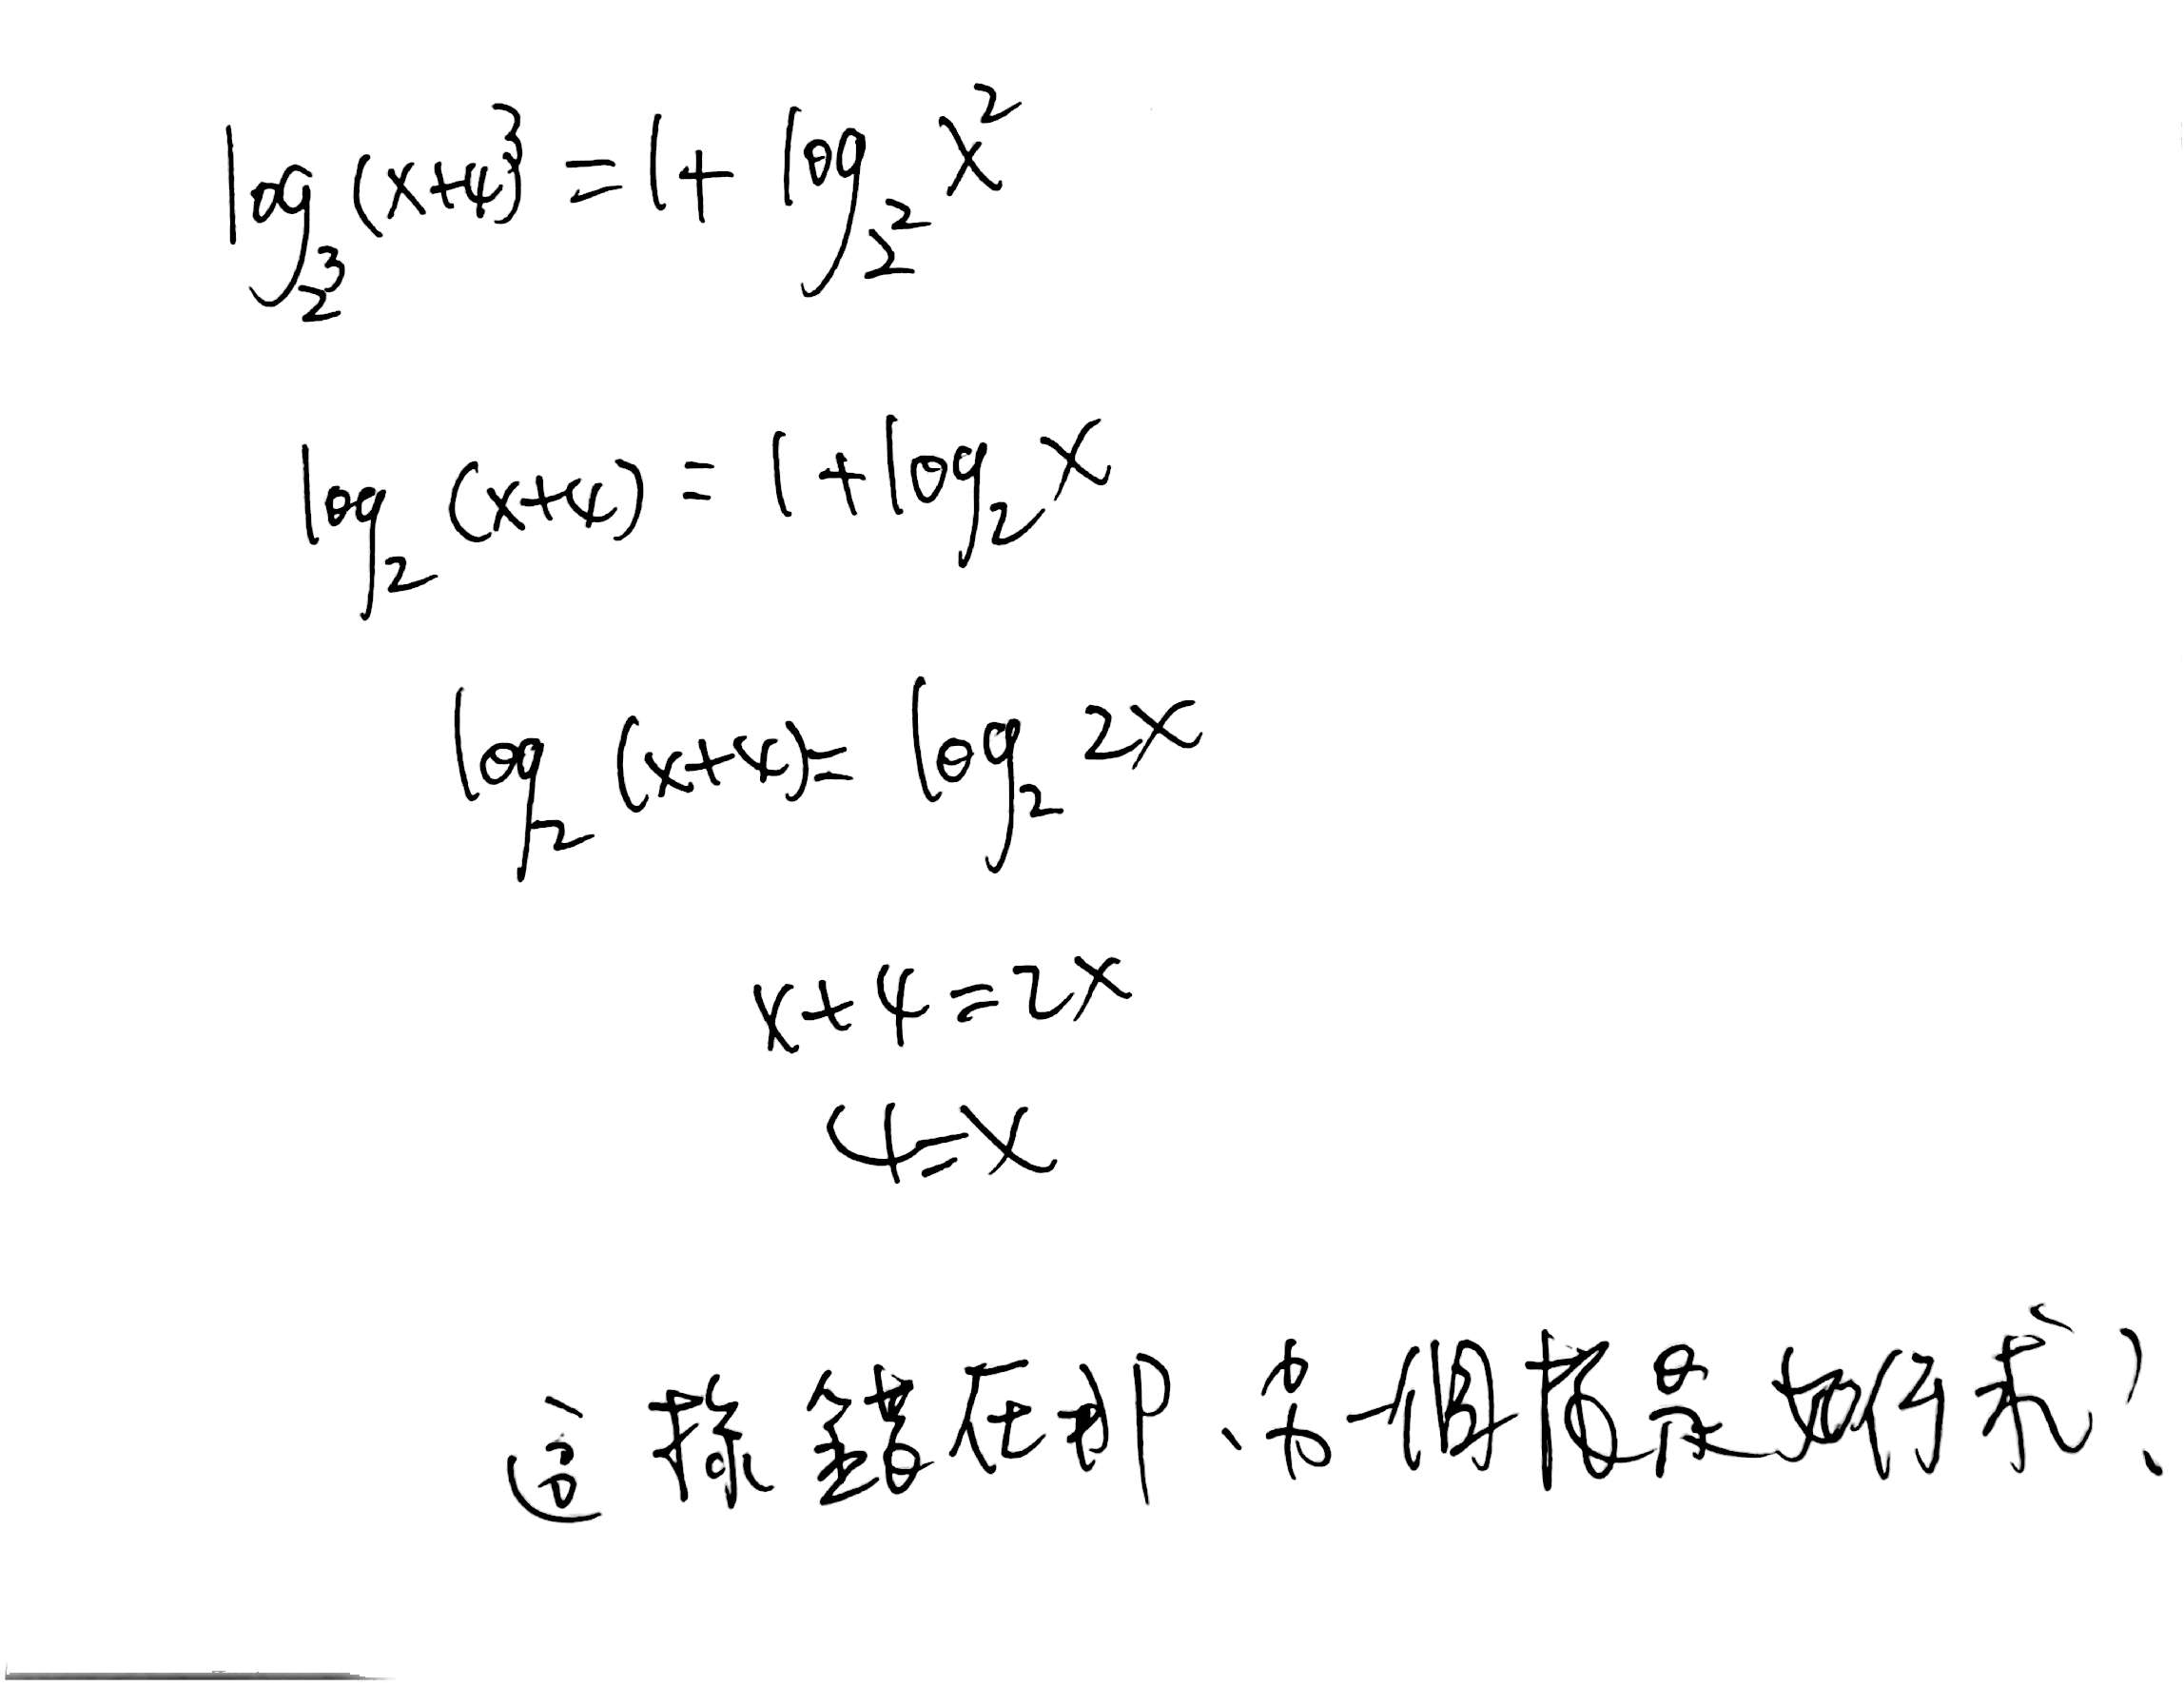 log_{2^3} (x+4)^3 = 1 + log_{2^2} x^2
log_2 (x+4) = 1 + log_2 x
log_2 (x+4) = log_2 2x
x+4=2x
4=x
這樣錯在那、另一個答案如何求?